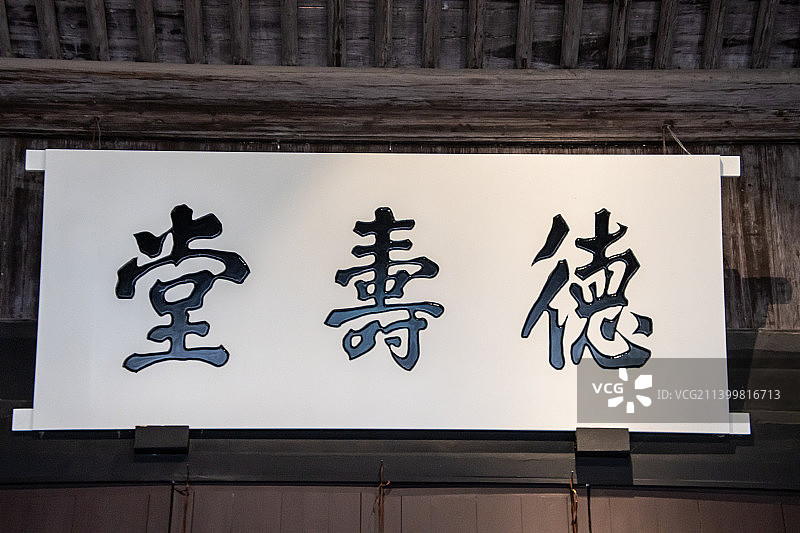 德壽堂
VCG
ID:VCG211399816713